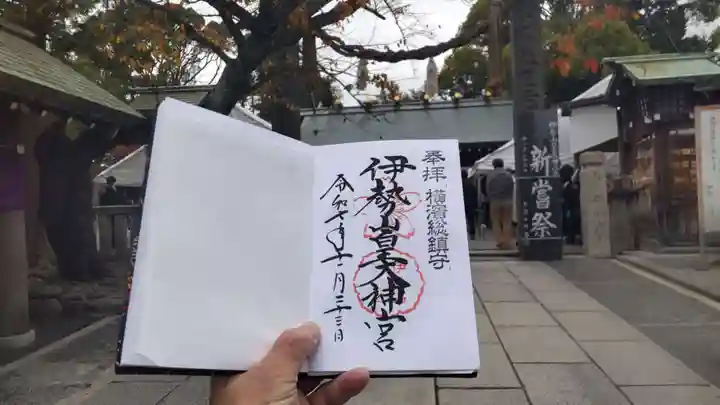 奉拝
横濱総鎮守
伊勢山皇大神宮
令和七年十一月二十三日
新嘗祭